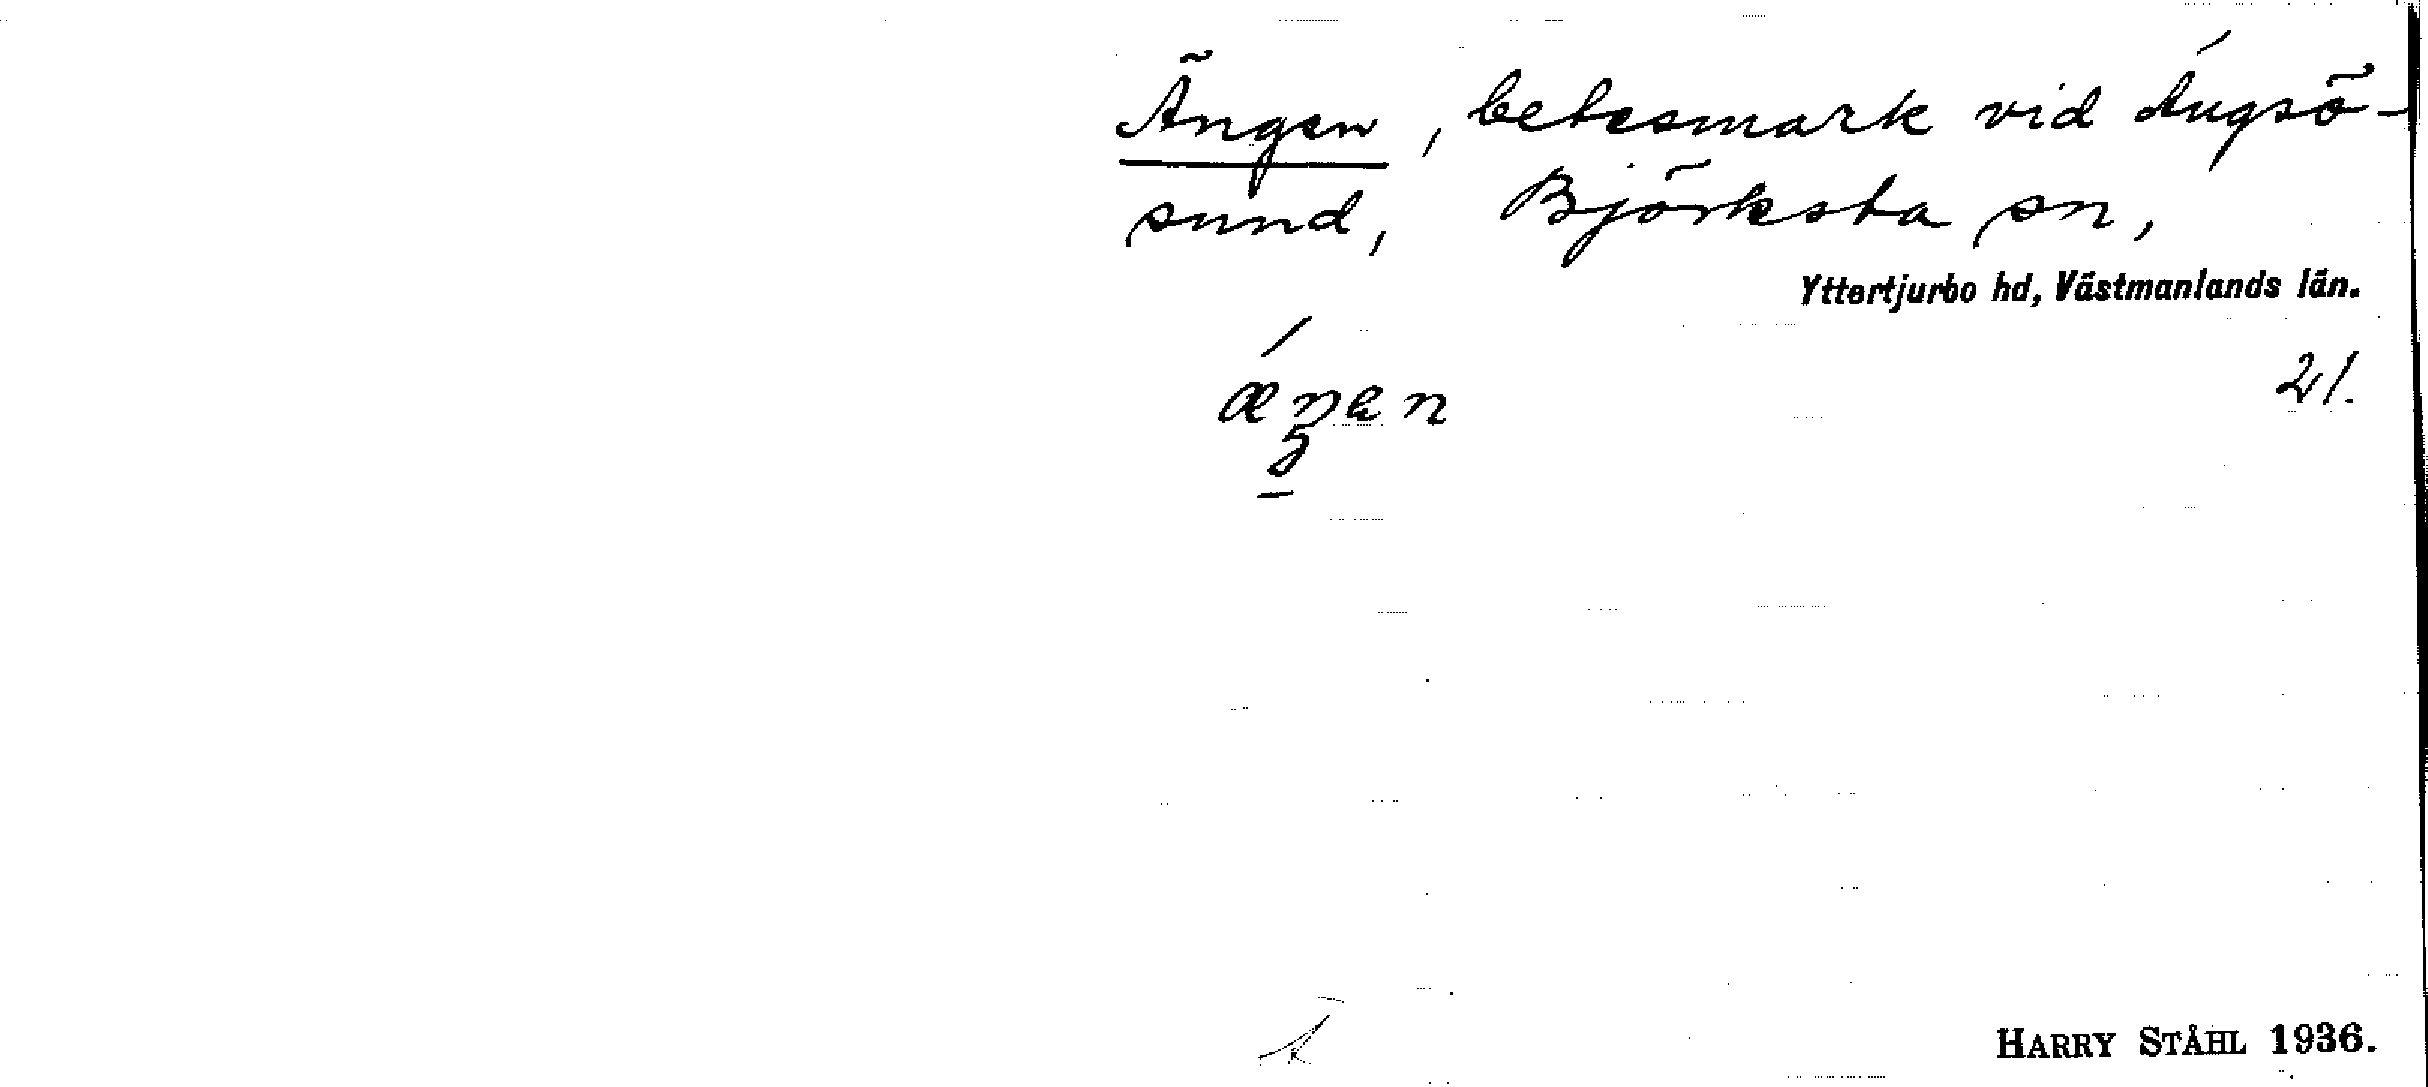 Ängen, betesmark vid Ängsö-
sund, Björksta sn,
Yttertjurbo hd, Västmanlands län.
21.
HARRY STÅHL 1936.